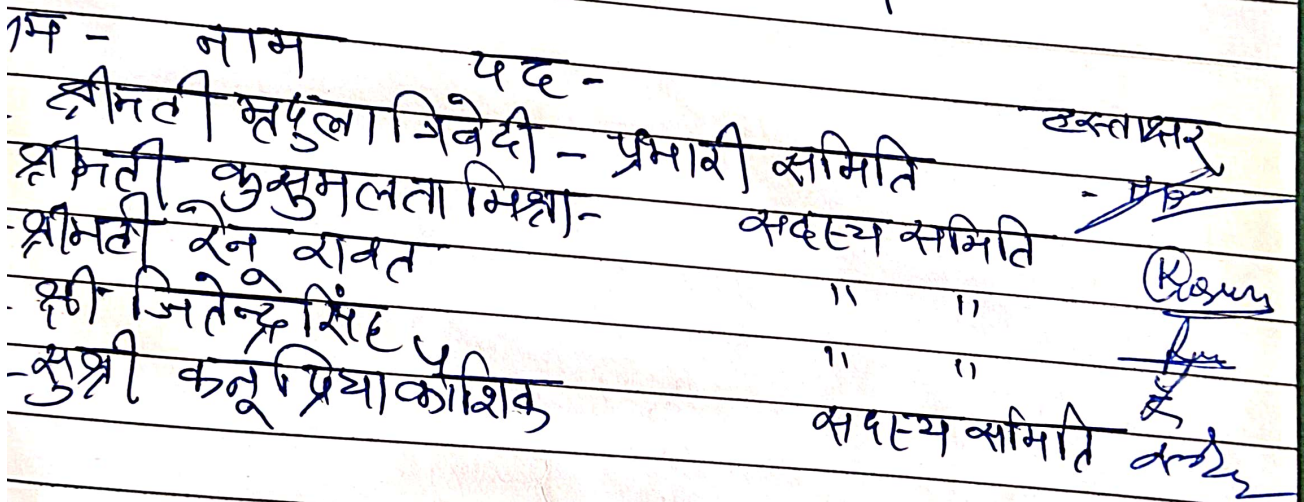 नाम पद - हस्ताक्षर
श्रीमती मृदुला त्रिवेदी - प्रभारी समिति
श्रीमती कुसुमलता मिश्रा - सदस्य समिति
श्रीमती रेनू रावत " "
श्री जितेन्द्र सिंह " "
सुश्री कनूप्रिया कौशिक सदस्य समिति